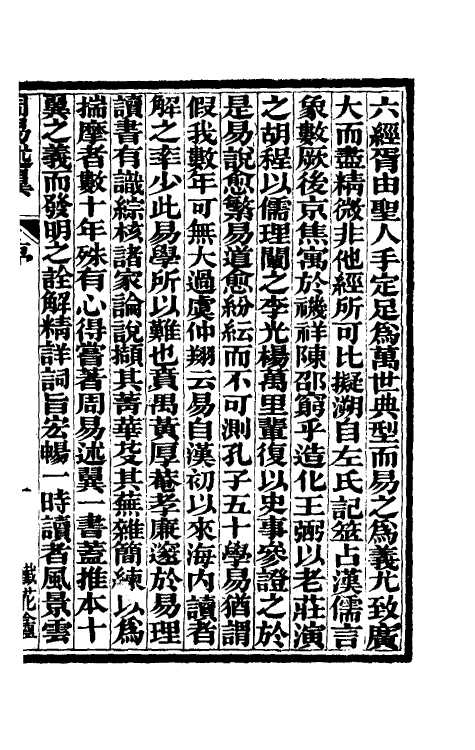 六經胥由聖人手定足爲萬世典型而易之爲義尤致廣
大而盡精微非他經所可比擬溯自左氏記筮占漢儒言
象數厥後京焦寓於禨祥陳邵窮乎造化王弼以老莊演
之胡程以儒理闡之李光楊萬里輩復以史事參證之於
是易說愈繁易道愈紛紜而不可測孔子五十學易猶謂
假我數年可無大過虞仲翔云易自漢初以來海内讀者
解之率少此易學所以難也賁禺黃厚菴孝廉邃於易理
讀書有識綜核諸家論說擷其菁華芟其蕪雜簡練以爲
揣摩者數十年殊有心得嘗著周易述翼一書蓋推本十
翼之義而發明之詮解精詳詞旨宏暢一時讀者風景雲
周易述翼
序
一
鐵花盦